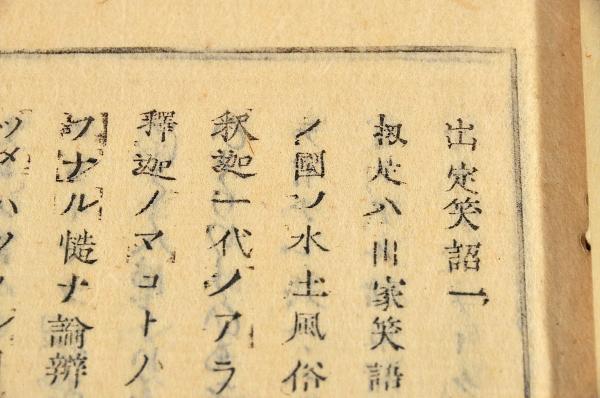 出定笑語一
扨是ハ出家笑語
ノ國ノ水土風俗
釈迦一代ノアラ
釋迦ノマコトハ
ワナル慥ナ論辨
ツメハ